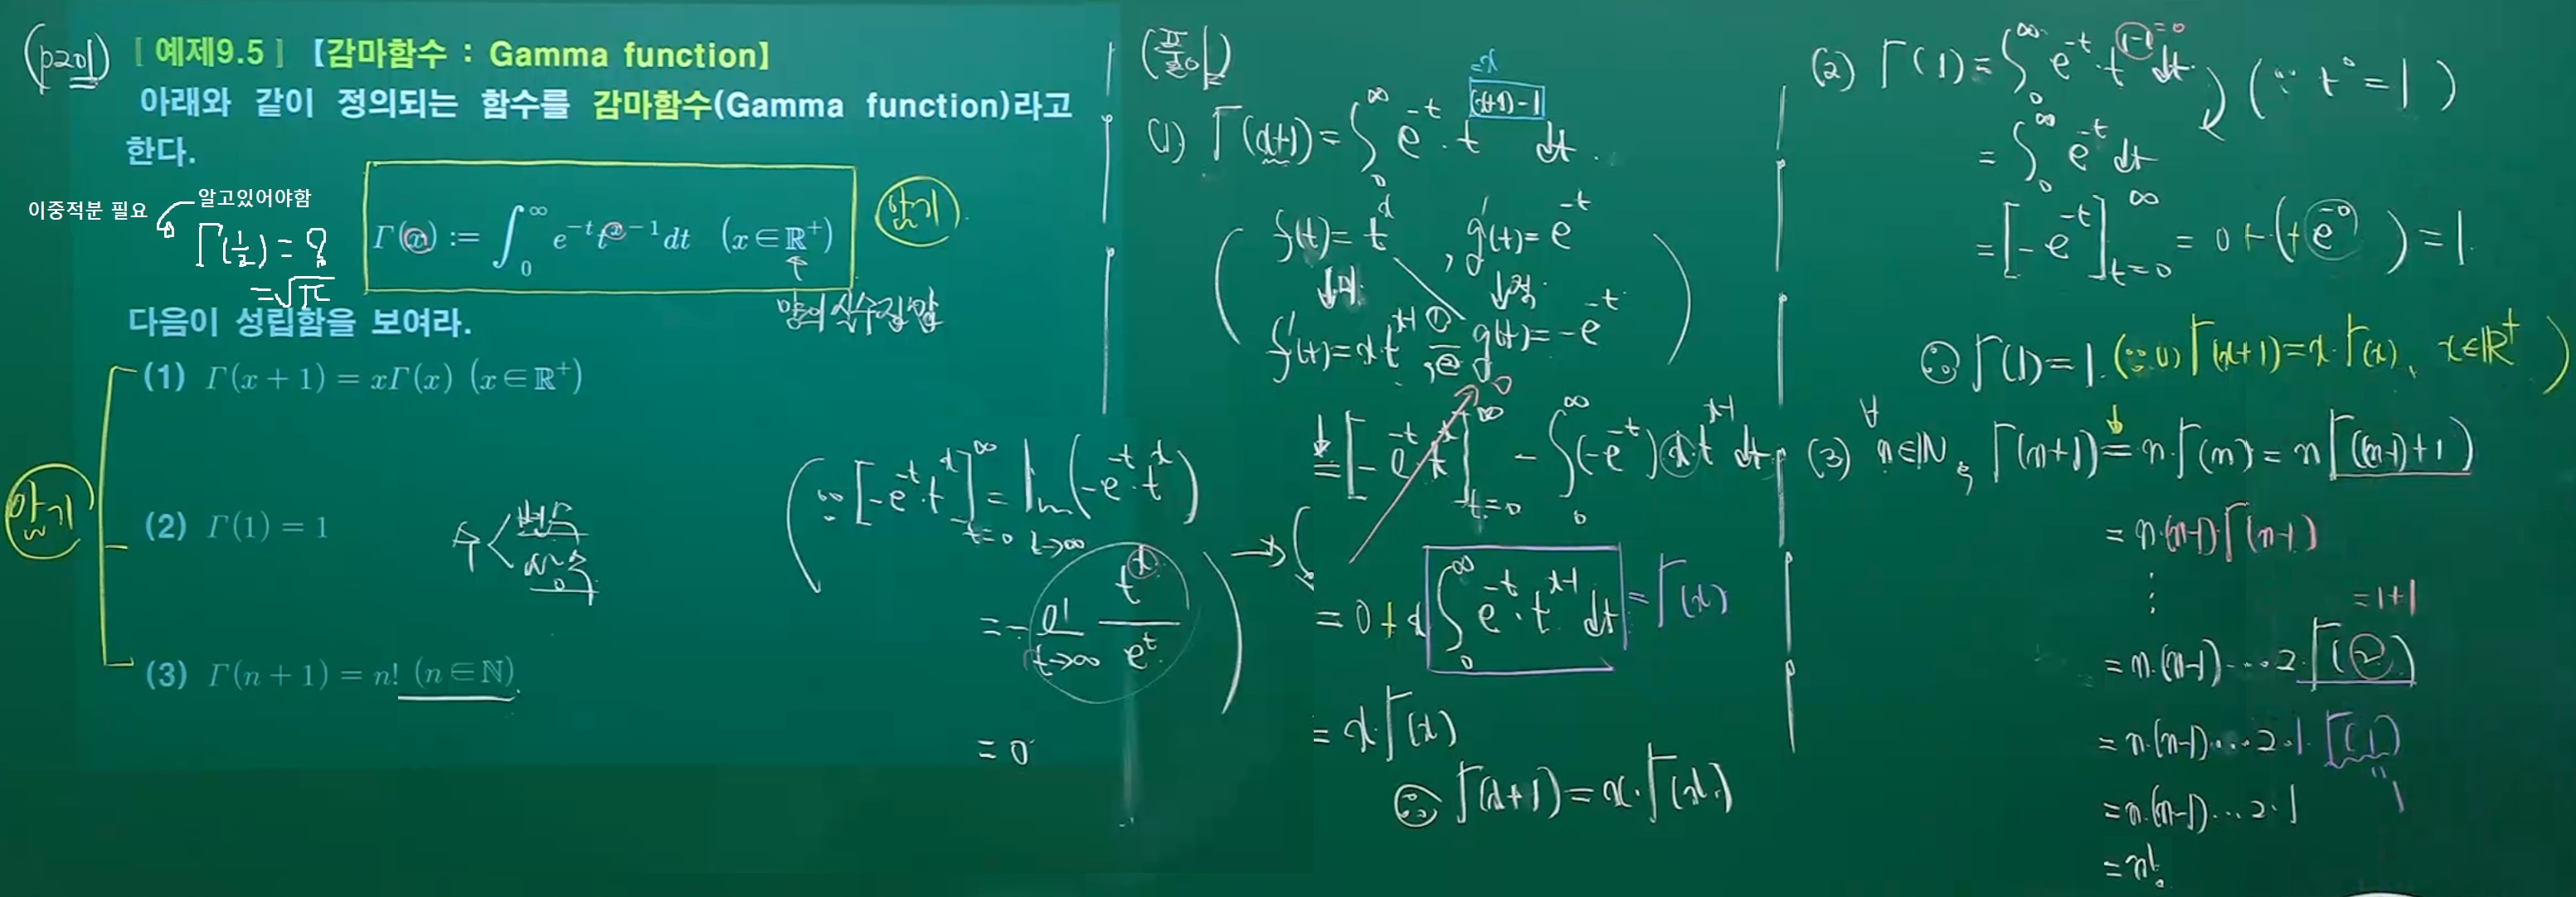 (p201)
[ 예제9.5 ] 【감마함수 : Gamma function】
아래와 같이 정의되는 함수를 감마함수(Gamma function)라고
한다.
알고있어야함
이중적분 필요
Γ(1/2) = ?
= √π
Γ(x) := ∫₀^∞ e^{-t} t^{x-1} dt (x∈ℝ⁺)
암기
양의 실수집합
다음이 성립함을 보여라.
(1) Γ(x+1) = xΓ(x) (x∈ℝ⁺)
(2) Γ(1) = 1
(3) Γ(n+1) = n! (n∈ℕ)
암기
수
(∵ [-e^{-t}·t^x]_{t=0}^∞ = lim_{t→∞} (-e^{-t}·t^x)
= - lim_{t→∞} t^x / e^t )
= 0
(풀이)
(1) Γ(x+1) = ∫₀^∞ e^{-t}·t^{(x+1)-1} dt.
=x
( f(t)= t^x , g'(t)= e^{-t}
↓미. ↓적.
f'(t)= x·t^{x-1}, g(t)= -e^{-t} )
① ②
= [-e^{-t} t^x]_{t=0}^∞ - ∫₀^∞ (-e^{-t}) x·t^{x-1} dt
0
= 0 + x ∫₀^∞ e^{-t}·t^{x-1} dt = Γ(x)
= x·Γ(x)
∴ Γ(x+1) = x·Γ(x)
(2) Γ(1) = ∫₀^∞ e^{-t}·t^{1-1} dt. (∵ t⁰ = 1)
=0
= ∫₀^∞ e^{-t} dt
= [-e^{-t}]_{t=0}^∞ = 0 + (+e^{-0}) = 1.
∴ Γ(1) = 1. (∵ (1) Γ(x+1) = x·Γ(x), x∈ℝ⁺)
(3) ∀n∈ℕ, Γ(n+1) = n·Γ(n) = n Γ((n-1)+1)
= n·(n-1)Γ(n-1)
⋮
=1+1
= n·(n-1)····2·Γ(2)
= n·(n-1)···2·1·Γ(1)
" 1
= n·(n-1)···2·1
= n!.